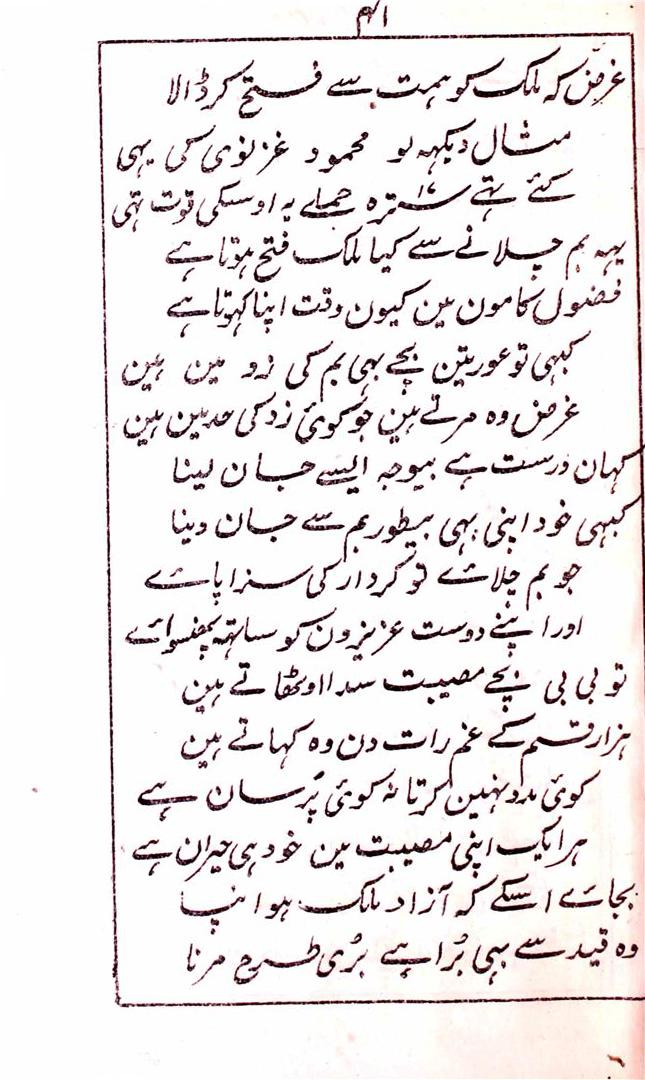 ۴۱
غرض کہ ملک کو ہمت سے فتح کر ڈالا
مثال دیکہہ لو محمود غزنوی کی یہی
کئے تہے ۱۷ سترہ حملے یہ اوسکی قوت تہی
یہہ بم چلانے سے کیا ملک فتح ہوتا ہے
فضول کامون مین کیون وقت اپنا کہوتا ہے
کبہی تو عورتین بچے بہی بم کی زد مین ہین
غرض وہ مرتے ہین جو کوئی زد کی حد مین ہین
کہان درست ہے بیوجہ ایسے جان لینا
کبہی خود اپنی بہی بیطور بم سے جان دینا
جو بم چلاے تو کردار کی سزا پاے
اور اپنے دوست عزیزون کو ساتہہ پھنسواے
تو بی بی بچے مصیبت سدا اوٹھاتے ہین
ہزار قسم کے غم رات دن وہ کہاتے ہین
کوئی مدد نہین کرتا نہ کوئی پُرسان ہے
ہر ایک اپنی مصیبت مین خود ہی حیران ہے
بجاے اسکے کہ آزاد ملک ہو اپنا
وہ قید سے بہی بُرا ہے بُری طرح مرنا